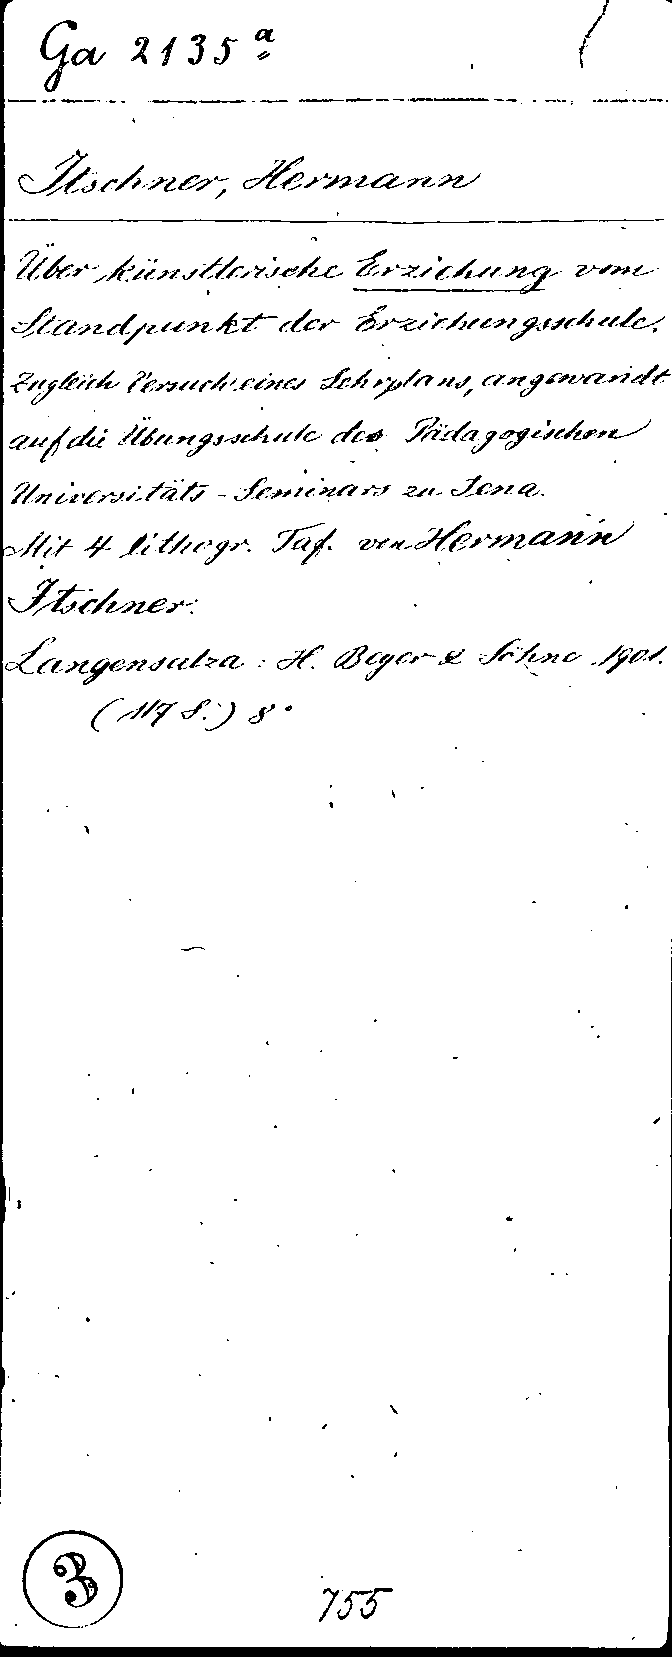 Ga 2135ª
Itschner, Hermann
Über künstlerische Erziehung vom
Standpunkt der Erziehungsschule.
Zugleich Versuch eines Lehrplans, angewandt
auf die Übungsschule des Pädagogischen
Universitäts-Seminars zu Jena.
Mit 4 lithogr. Taf. von Hermann
Itschner.
Langensalza: H. Beyer & Söhne 1901.
(117 S.) 8°
3
755